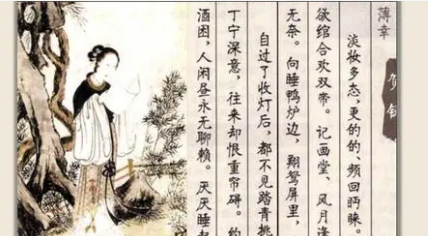 薄幸
贺铸
淡妆多态，更的的、频回眄睐。
欲绾合欢双带。记画堂、风月逢
无奈。向睡鸭炉边，翔鸳屏里，
自过了收灯后，都不见踏青挑
丁宁深意，往来却恨重帘碍。约
酒困，人闲昼永无聊赖。厌厌睡起